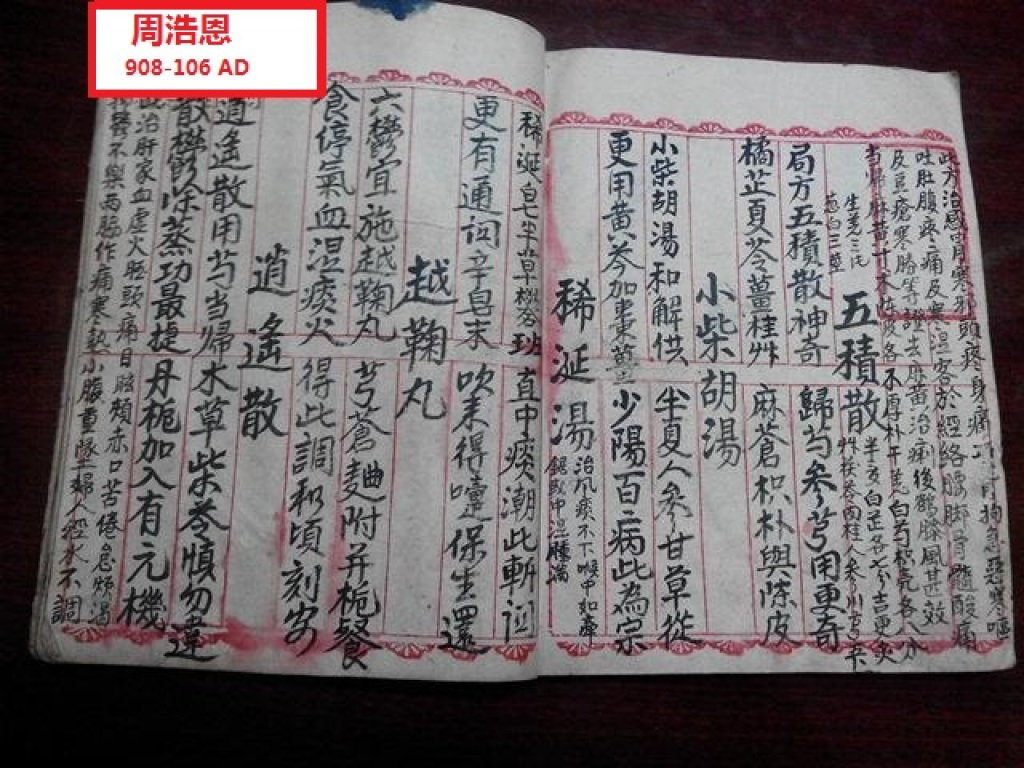 周浩恩
908-106 AD
此方治感冒寒邪頭疼身痛拘急惡寒嘔
吐肚腹疼痛及寒濕客於經絡腰脚骨髓酸痛
及豆瘡寒勝等證去麻黃治痢後鶴膝風甚效
生姜三片
葱白三莖
五積散
局方五積散神奇 歸芍參芎用更奇
橘芷夏苓薑桂艸 麻蒼枳朴與陈皮
小柴胡湯
小柴胡湯和解供 半夏人參甘草從
更用黄芩加棗薑 少陽百病此為宗
稀涎湯
治风痰不下喉中如牵
鋸或中湿腫滿
稀涎皂半草礬班 直中痰潮此斬関
更有通関辛皂末 吹来得嚏保生還
越鞠丸
六鬱宜施越鞠丸 芎蒼麯附并栀餐
食停氣血湿痰火 得此調和頃刻安
逍遙散
逍遙散用芍当帰 术草柴苓慎勿違
散鬱除蒸功最捷 丹栀加入有元機
治肝家血虚火旺頭痛目眩頰赤口苦倦怠煩渴
鬱不樂両脇作痛寒熱小腹重墜婦人經水不調